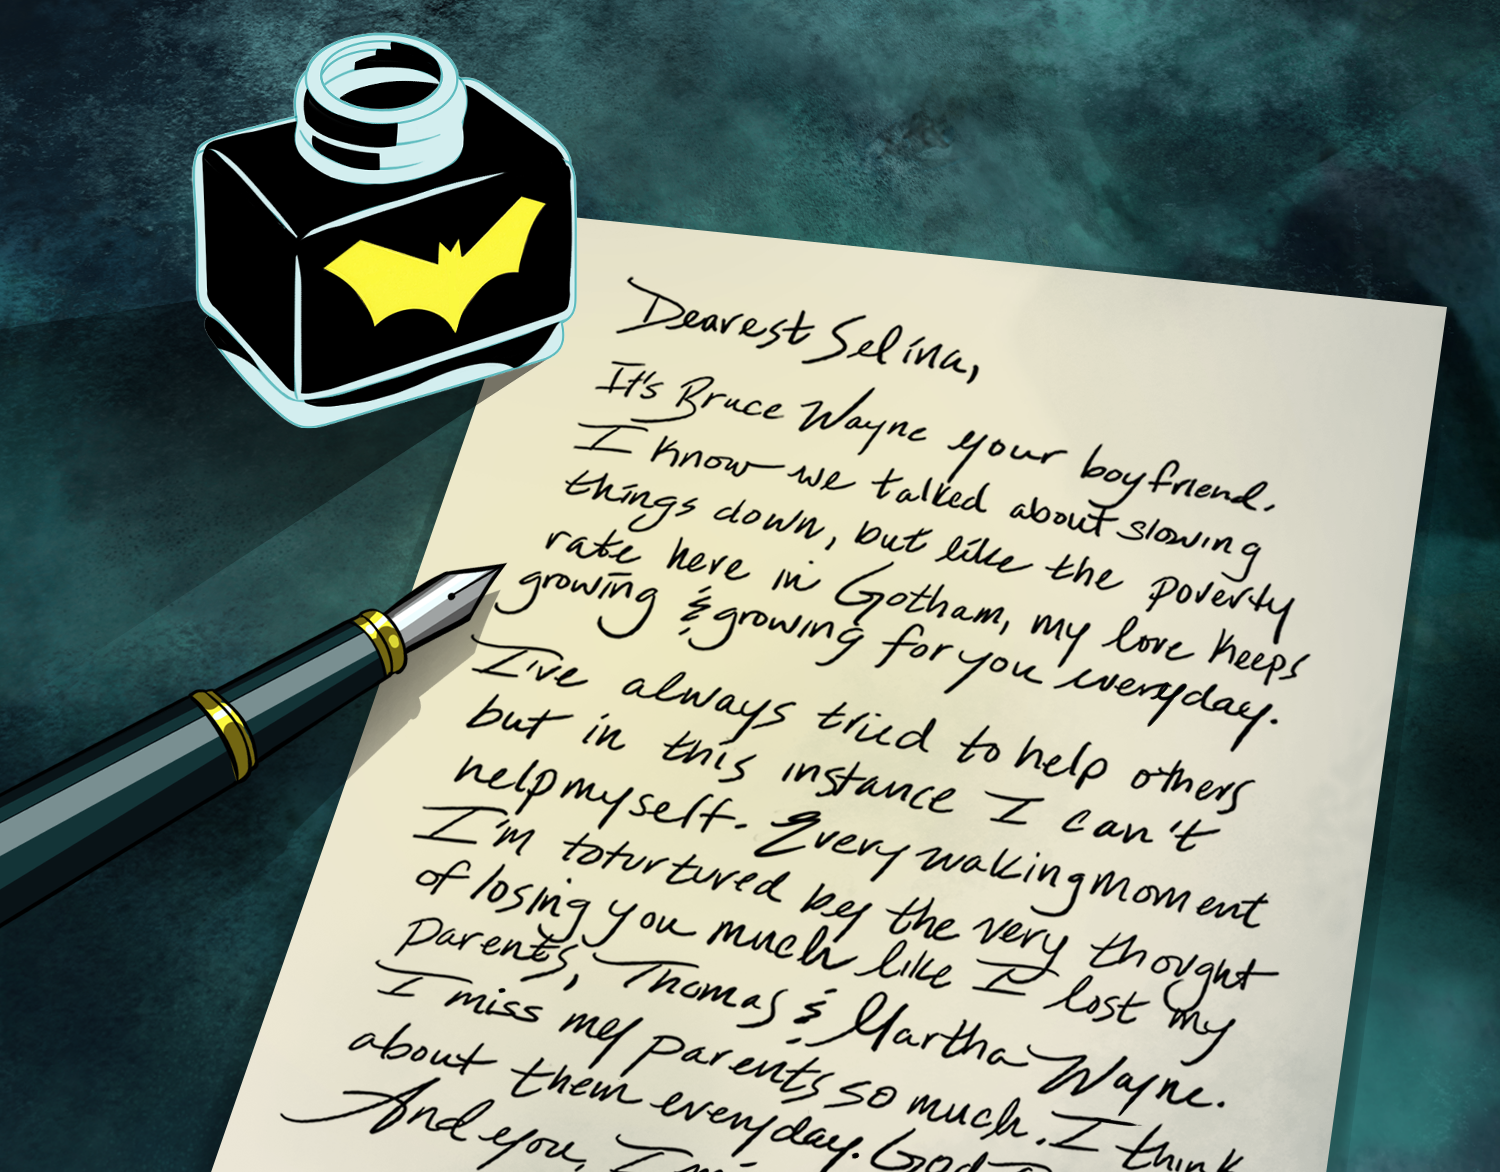 Dearest Selina,
It's Bruce Wayne your boyfriend.
I know we talked about slowing
things down, but like the poverty
rate here in Gotham, my love keeps
growing & growing for you everyday.
I've always tried to help others
but in this instance I can't
help myself. Every waking moment
I'm toturtured by the very thought
of losing you much like I lost my
parents, Thomas & Martha Wayne.
I miss my parents so much. I think
about them everyday. God
And you, I